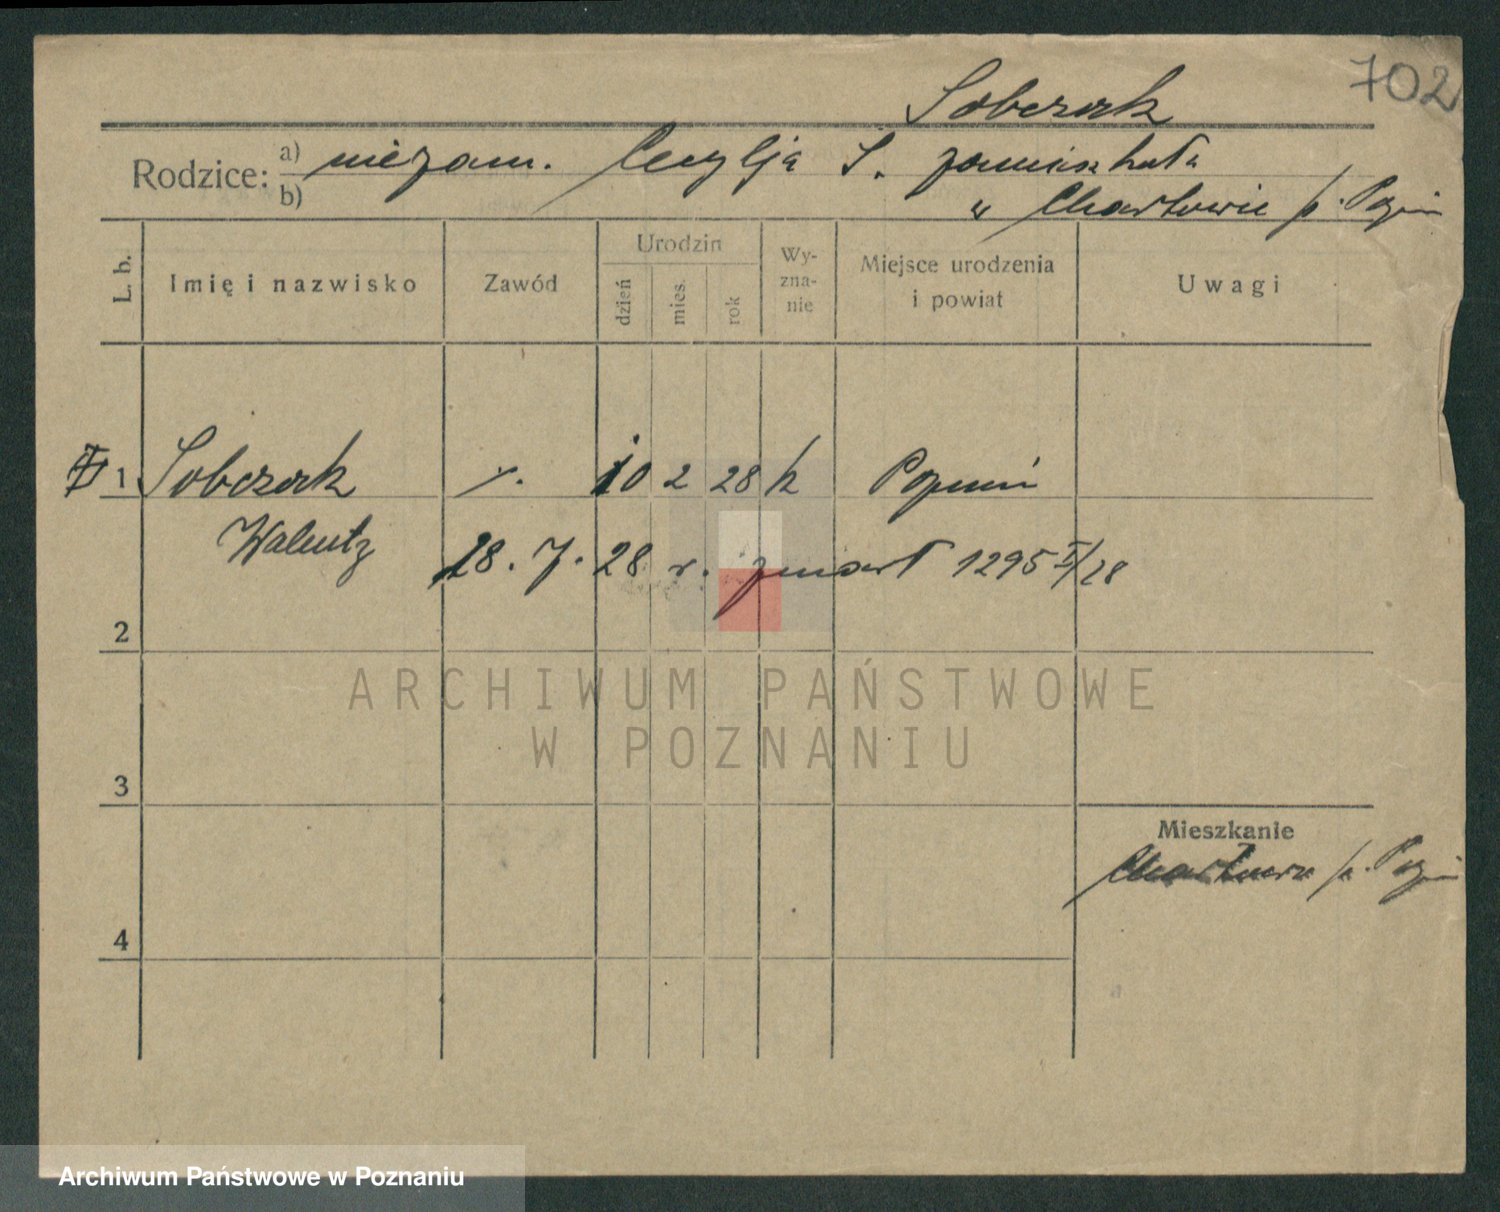 702
Sobczak
Rodzice: a) niezam. Cecylja S. zamieszkała
b) w Chartowie p. Pozn
L. b. Imię i nazwisko Zawód Urodzin dzień mies. rok Wy-zna-nie Miejsce urodzenia i powiat Uwagi
1 Sobczak 10 2 28 k Poznań
Walenty 28. 7. 28 r. zmarł 1295 II/28
2
ARCHIWUM PAŃSTWOWE
W POZNANIU
3
Mieszkanie
Chartowo p. Pozn
4
Archiwum Państwowe w Poznaniu